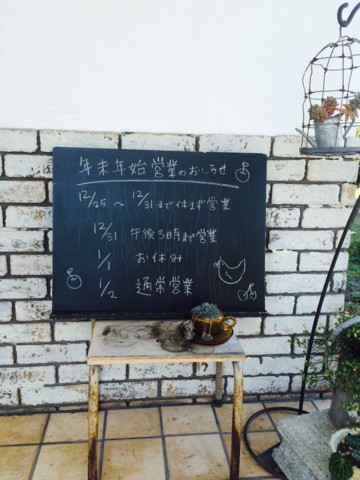 年末年始営業のおしらせ
12/25 〜 12/31まで休まず営業
12/31 午後3時まで営業
1/1 お休み
1/2 通常営業